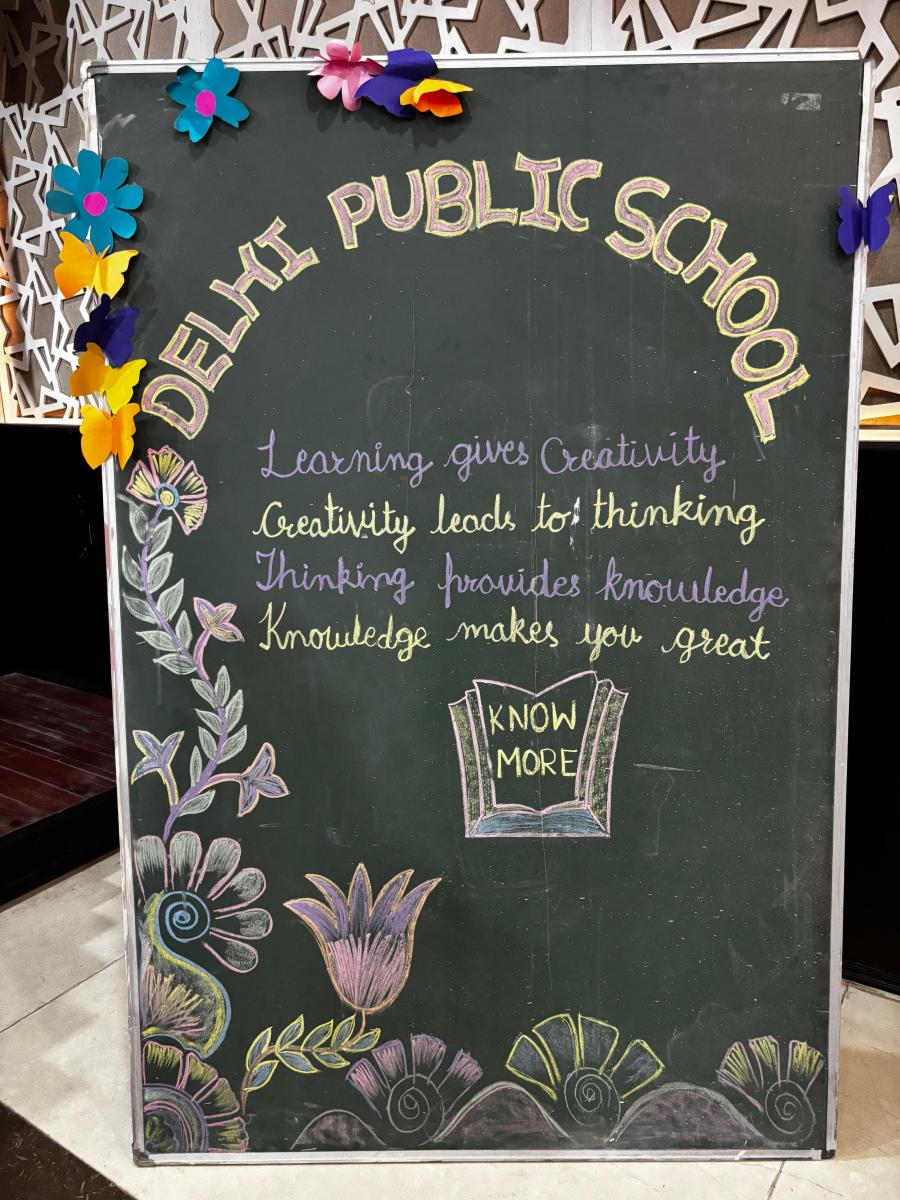 DELHI PUBLIC SCHOOL
Learning gives Creativity
Creativity leads to thinking
Thinking provides knowledge
Knowledge makes you great
KNOW
MORE